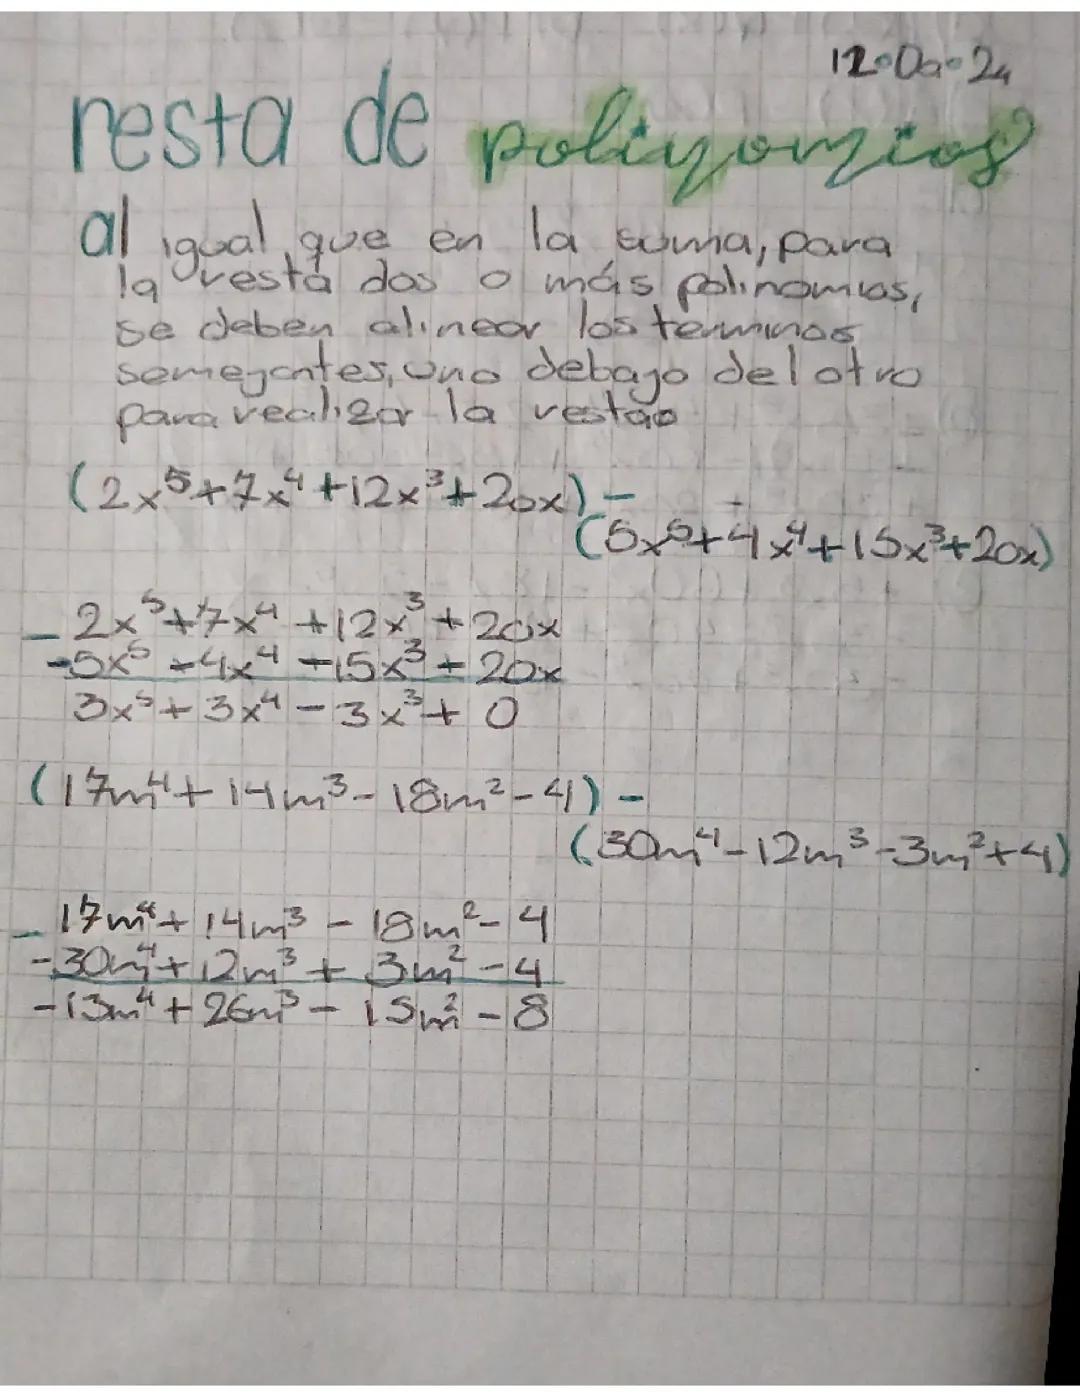 12•Da•24
resta de polinomios
al igual que en la suma, para
la resta dos o más polinomios,
se deben alinear los terminos
semejantes, uno debajo del otro
para realizar la resta•
(2x⁵+7x⁴+12x³+20x) -
(5x⁵+4x⁴+15x³+20x)
- 2x⁵+7x⁴+12x³+20x
-5x⁵-4x⁴-15x³+20x
3x⁵+3x⁴-3x³+0
(17m⁴+14m³-18m²-4) -
(30m⁴-12m³-3m²+4)
- 17m⁴+14m³-18m²-4
-30m⁴+12m³+3m²-4
-13m⁴+26m³-15m²-8